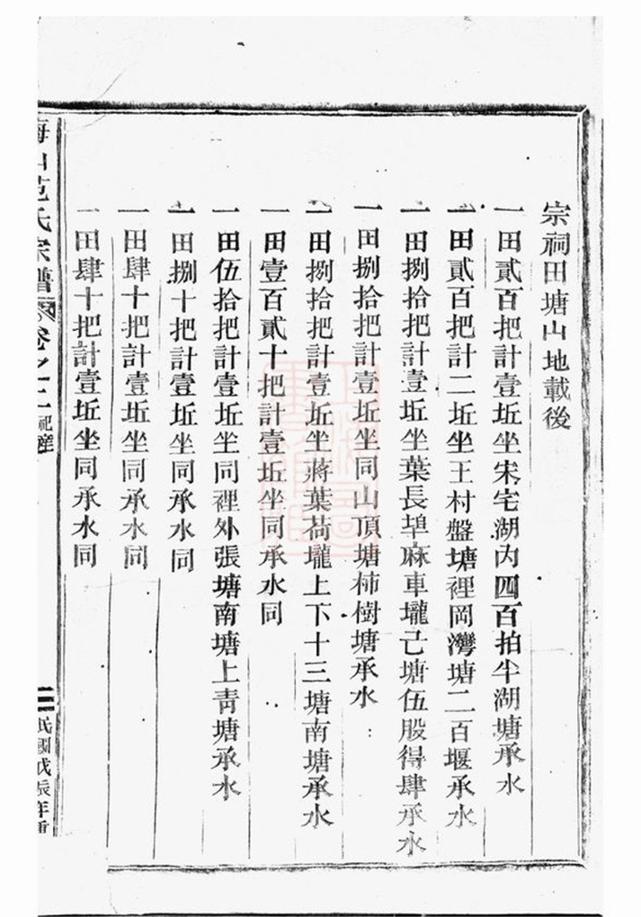 宗祠田塘山地載後
一田貳百把計壹坵坐宋宅湖內四百拍半湖塘承水
一田貳百把計二坵坐王村盤塘裡岡灣塘二百堰承水
一田捌拾把計壹坵坐葉長埠麻車壠己塘伍股得肆承水
一田捌拾把計壹坵坐同山頂塘柿樹塘承水
一田捌拾把計壹坵坐蔣葉荷壠上下十三塘南塘承水
一田壹百貳十把計壹坵坐同承水同
一田伍拾把計壹坵坐同裡外張塘南塘上靑塘承水
一田捌十把計壹坵坐同承水同
一田肆十把計壹坵坐同承水同
一田肆十把計壹坵坐同承水同
范氏宗譜 卷之二 祀產
民國戊辰年重